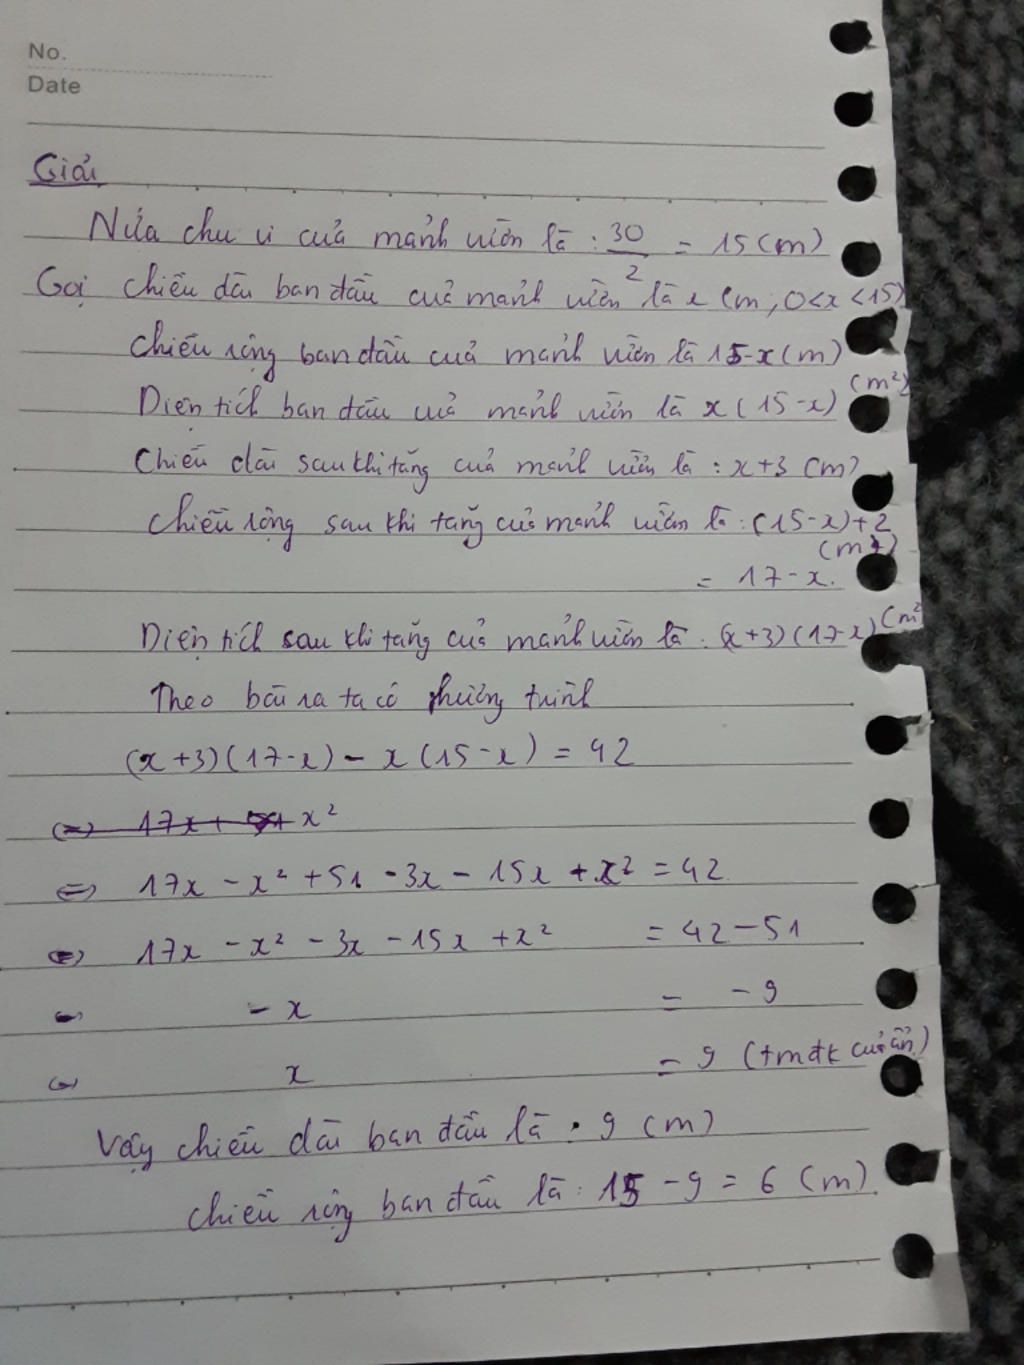 No.
Date
Giải
Nửa chu vi của mảnh vườn là : 30/2 = 15 (m)
Gọi chiều dài ban đầu của mảnh vườn là x (m, 0<x<15)
chiều rộng ban đầu của mảnh vườn là 15-x (m)
Diện tích ban đầu của mảnh vườn là x(15-x) (m²)
Chiều dài sau khi tăng của mảnh vườn là : x+3 (m)
chiều rộng sau khi tăng của mảnh vườn là : (15-x)+2
(m)
= 17-x.
Diện tích sau khi tăng của mảnh vườn là : (x+3)(17-x) (m²
Theo bài ra ta có phương trình
(x+3)(17-x) - x(15-x) = 42
<=> 17x + 51 x²
<=> 17x - x² + 51 - 3x - 15x + x² = 42
<=> 17x - x² - 3x - 15x + x² = 42-51
<=> -x = -9
<=> x = 9 (tmđk của ẩn)
Vậy chiều dài ban đầu là : 9 (m)
chiều rộng ban đầu là : 15 - 9 = 6 (m)